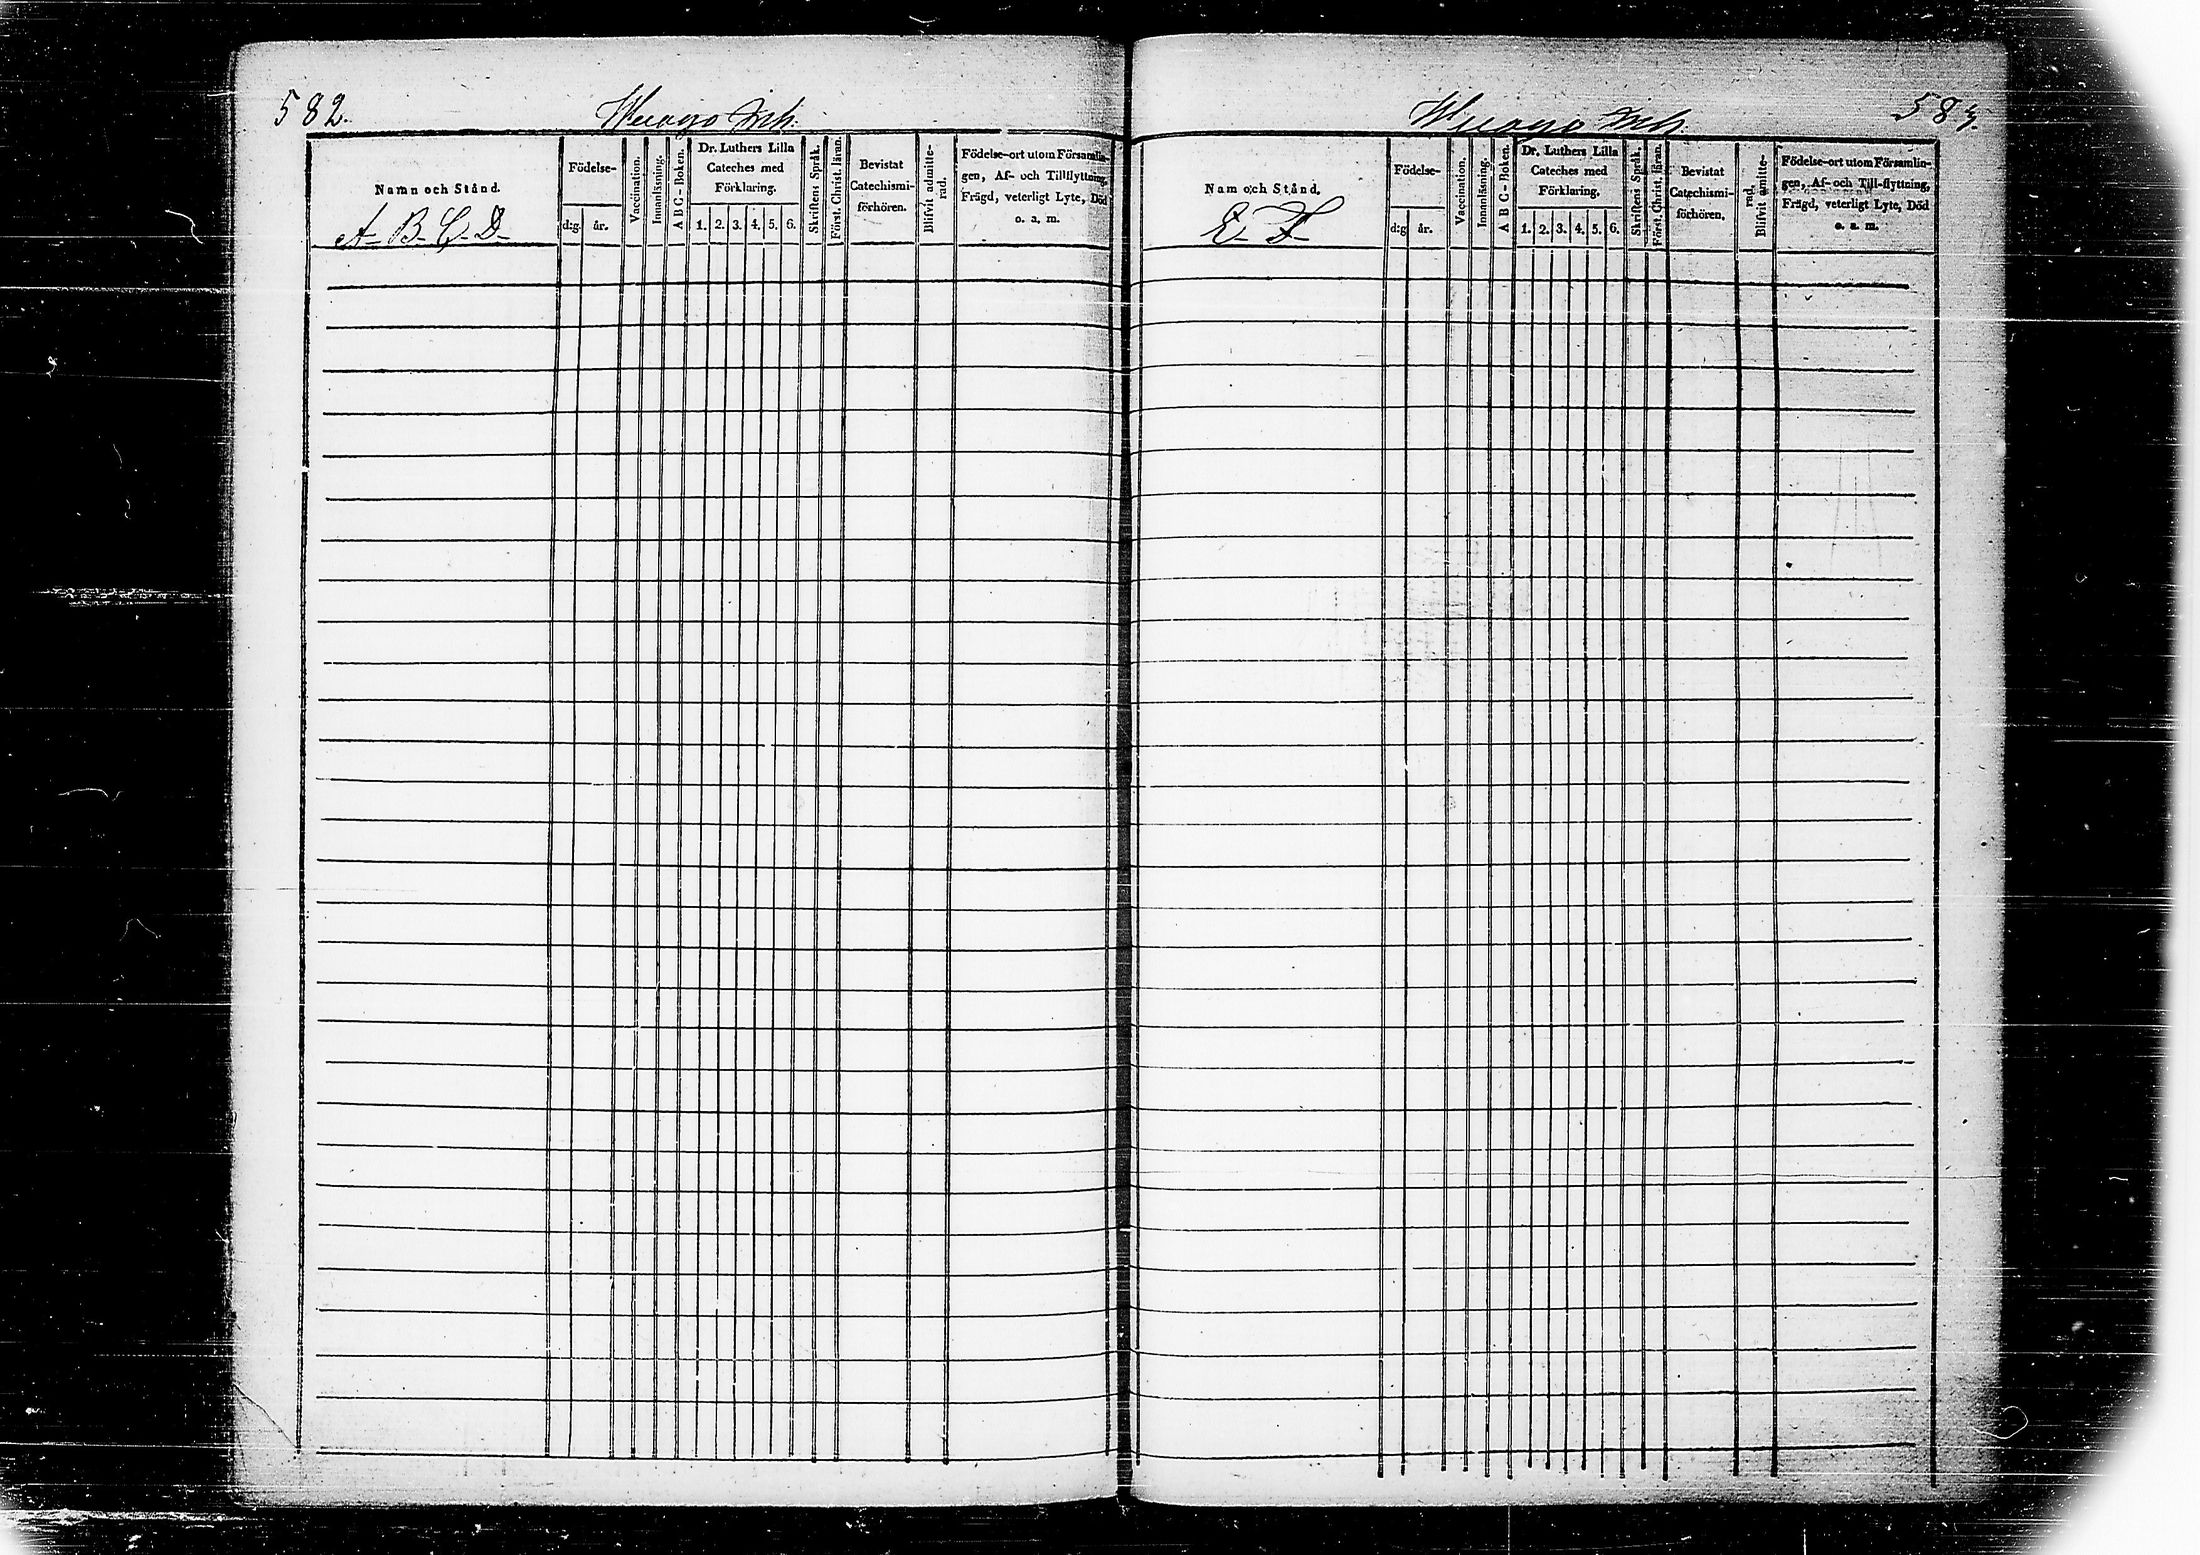 582.
Inh.
Namn och Stånd.
A. B. C. D.
Födelse-
d:g.
år.
Vaccination.
Innanläsning.
A B C - Boken.
Dr. Luthers Lilla
Cateches med
Förklaring.
1. 2. 3. 4. 5. 6.
Skriftens Språk.
Först. Christ. läran.
Bevistat
Catechismi-
förhören.
Blifvit admitte-
rad.
Födelse-ort utom Församlin-
gen, Af- och Tillflyttning,
Frägd, veterligt Lyte, Död
o. a. m.
Inh.
583.
Nam och Stånd.
E. F.
Födelse-
d:g
år.
Vaccination.
Innanläsning.
A B C - Boken.
Dr. Luthers Lilla
Cateches med
Förklaring.
1. 2. 3. 4. 5. 6.
Skriftens Språk.
Först. Christ. läran.
Bevistat
Catechismi-
förhören.
rad.
Blifvit amitte-
Födelse-ort utom Församlin-
gen, Af- och Till-flyttning,
Frägd, veterligt Lyte, Död
o. a. m.